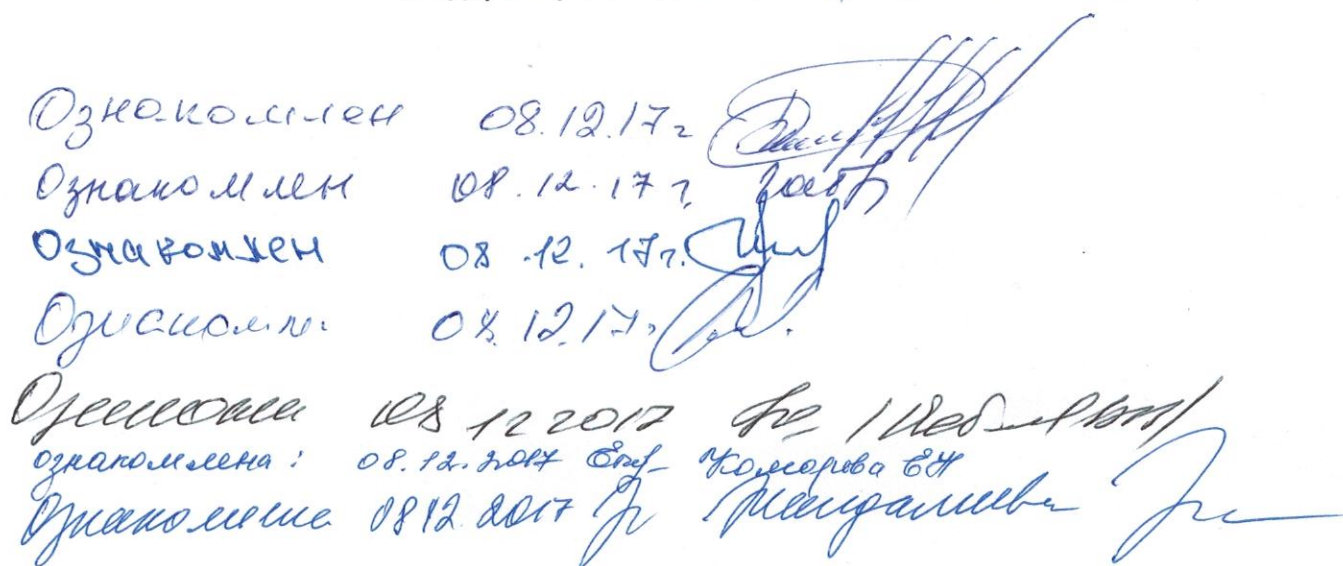 Ознакомлен 08.12.17г
Ознакомлен 08.12.17г.
Ознакомлен 08.12.17г.
Ознакомл. 08.12.17г.
08 12 2017
ознакомлена: 08.12.2017 Комарова ЕН
Ознакомлена 08 12. 2017